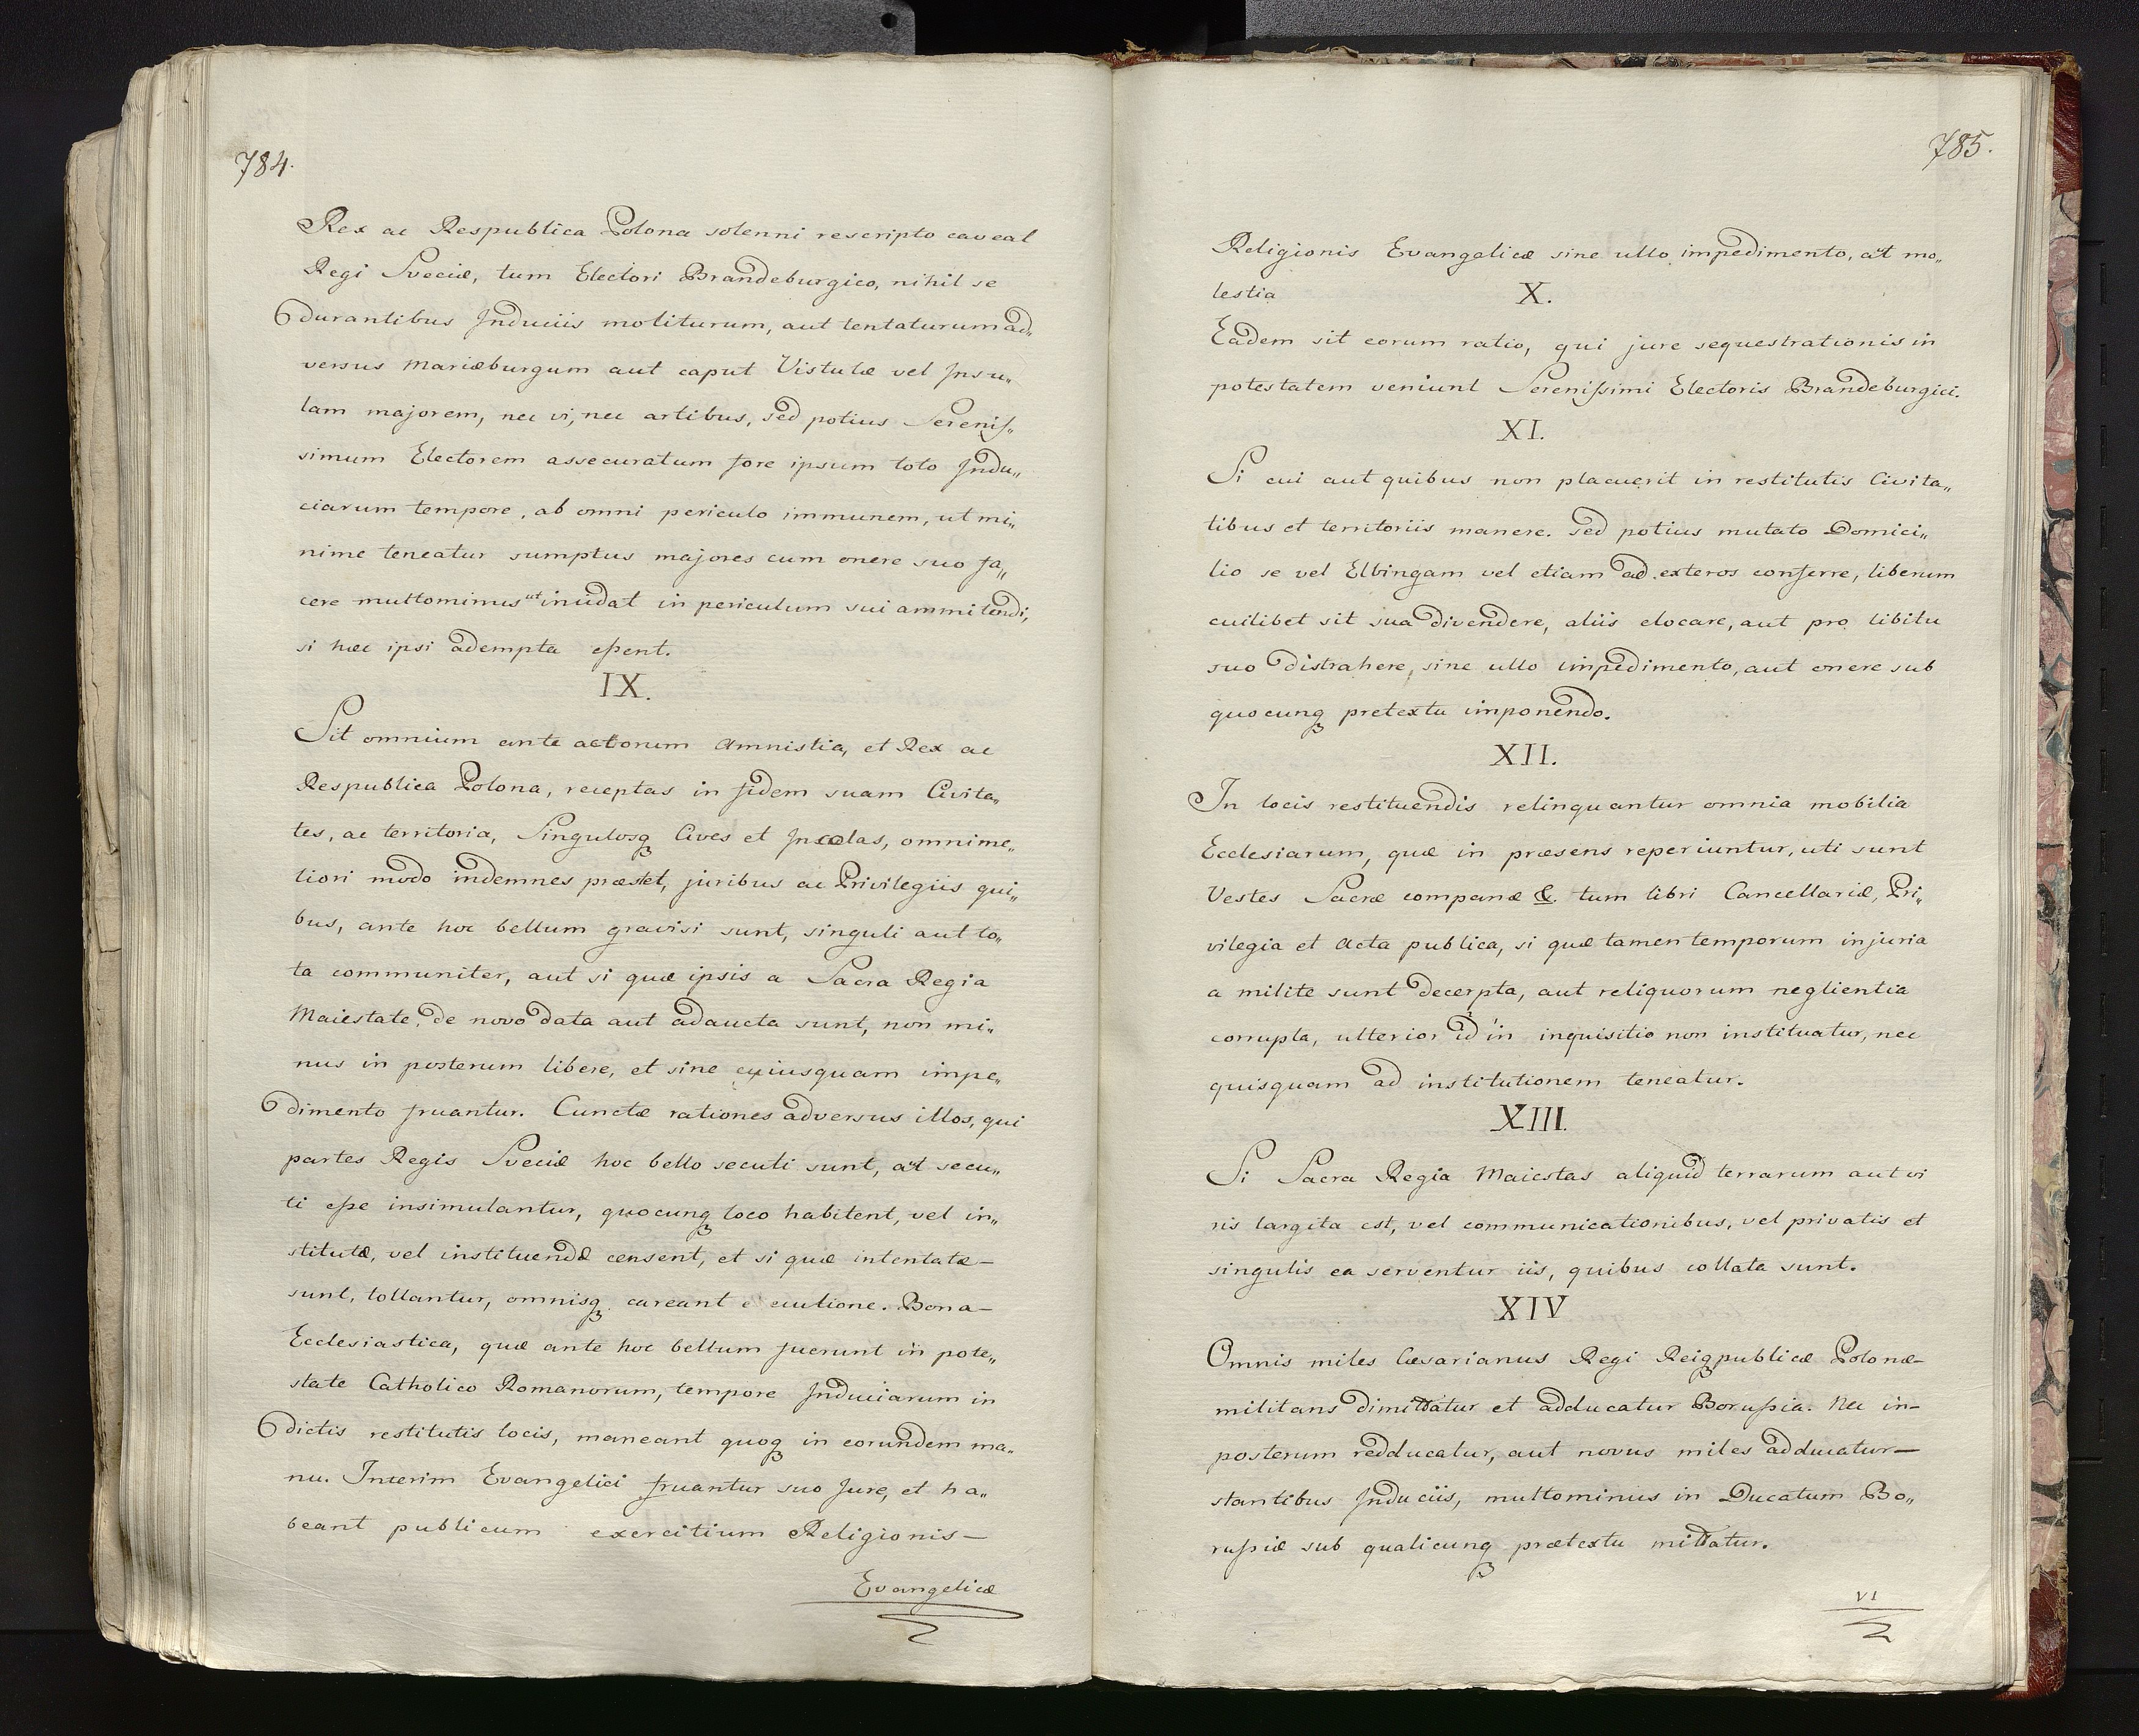 784.
Rex ac Respublica Polona solenni rescripto caveat
Regi Sveciæ, tum Electori Brandeburgico, nihil se
durantibus Induciis moliturum, aut tentaturum ad„
versus Mariæburgum aut caput Vistulæ vel Insu„
lam majorem, nec vi, nec artibus, sed potius Sereniſ„
simum Electorem assecuratum fore ipsum toto Indu„
ciarum tempore, ab omni periculo immunem, ut mi„
nime teneatur sumptus majores cum onere suo fa„
cere multominus ut incidat in periculum sui ammitendi,
si hæc ipsi adempta eſsent.
IX.
Sit omnium ante actorum Amnistia, et Rex ac
Respublica Polona, receptas in fidem suam Civita„
tes, ac territoria, Singulosqꝫ Cives et Incolas, omnime„
liori modo indemnes præstet, juribus ac Privilegiis qui„
bus, ante hoc bellum gravisi sunt, singuli aut to„
ta communiter, aut si quæ ipsis a Sacra Regia
Maiestate, de novo data aut adaucta sunt, non mi„
nus in posterum libere, et sine cujusquam impe„
dimento fruantur. Cunctæ rationes adversus illos, qui
partes Regis Sveciæ hoc bello secuti sunt, aut secu„
ti eſse insimulantur, quocunqꝫ loco habitent, vel in„
stitutæ, vel instituendæ censent, et si quæ intentatæ –
sunt, tollantur, omnisqꝫ careant e cutione. Bona –
Ecclesiastica, quæ ante hoc bellum fuerunt in pote„
state Catholico Romanorum, tempore Induciarum in
dictis restitutis locis, maneant quoqꝫ in eorundem ma„
nu. Interim Evangelici fruantur suo Jure, et ha„
beant publicum exercitium Religionis –
Evangelicæ
785.
Religionis Evangelicæ sine ullo impedimento, aut mo„
lestia
X.
Eadem sit eorum ratio, qui jure sequestrationis in
potestatem veniunt Sereniſsimi Electoris Brandeburgici.
XI.
Si cui aut quibus non placuerit in restitutis Civita„
tibus et territoriis manere. sed potius mutato Domici„
lio se vel Elbingam vel etiam ad exteros conferre, liberum
cuilibet sit sua divendere, aliis elocare, aut pro libitu
suo distrahere, sine ullo impedimento, aut onere sub
quocunqꝫ pretextu imponendo.
XII.
In locis restituendis relinquantur omnia mobilia
Ecclesiarum, quæ in præsens reperiuntur, uti sunt
Vestes Sacræ companæ &. tum libri Cancellariæ, Pri„
vilegia et Acta publica, si quæ tamen temporum injuria
a milite sunt decerpta, aut reliquorum neglientia
corrupta, ulterior id in inquisitio non instituatur, nec
quisquam ad institutionem teneatur.
XIII.
Si Sacra Regia Maiestas aliquid terrarum aut vi
ris largita est, vel communicationibus, vel privatis et
singulis ea serventur iis, quibus collata sunt.
XIV
Omnis miles Cæsarianus Regi Reiqꝫpublicæ Polonæ –
militans dimittatur et adducatur Boruſsia. Nec in –
posterum redducatur, aut novus miles adducatur –
stantibus Induciis, multominus in Ducatum Bo„
ruſsiæ sub qualicunqꝫ prætextu mittatur.
VI